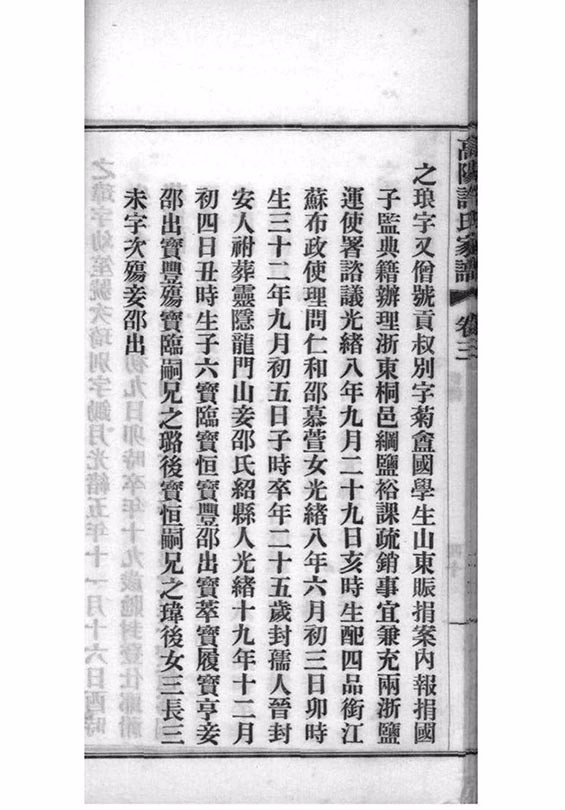 之琅字又僧號貢叔別字菊盦國學生山東賑捐案內報捐國
子監典籍辦理浙東桐邑綱鹽裕課疏銷事宜兼充兩浙鹽
運使署諮議光緒八年九月二十九日亥時生配四品銜江
蘇布政使理問仁和邵慕萱女光緒八年六月初三日卯時
生三十二年九月初五日子時卒年二十五歲封孺人晉封
安人祔葬靈隱龍門山妾邵氏紹縣人光緒十九年十二月
初四日丑時生子六寶臨寶恒寶豐邵出寶萃寶履寶亨妾
邵出寶豐殤寶臨嗣兄之璐後寶恒嗣兄之瑋後女三長三
未字次殤妾邵出
高陽許氏家譜 卷三